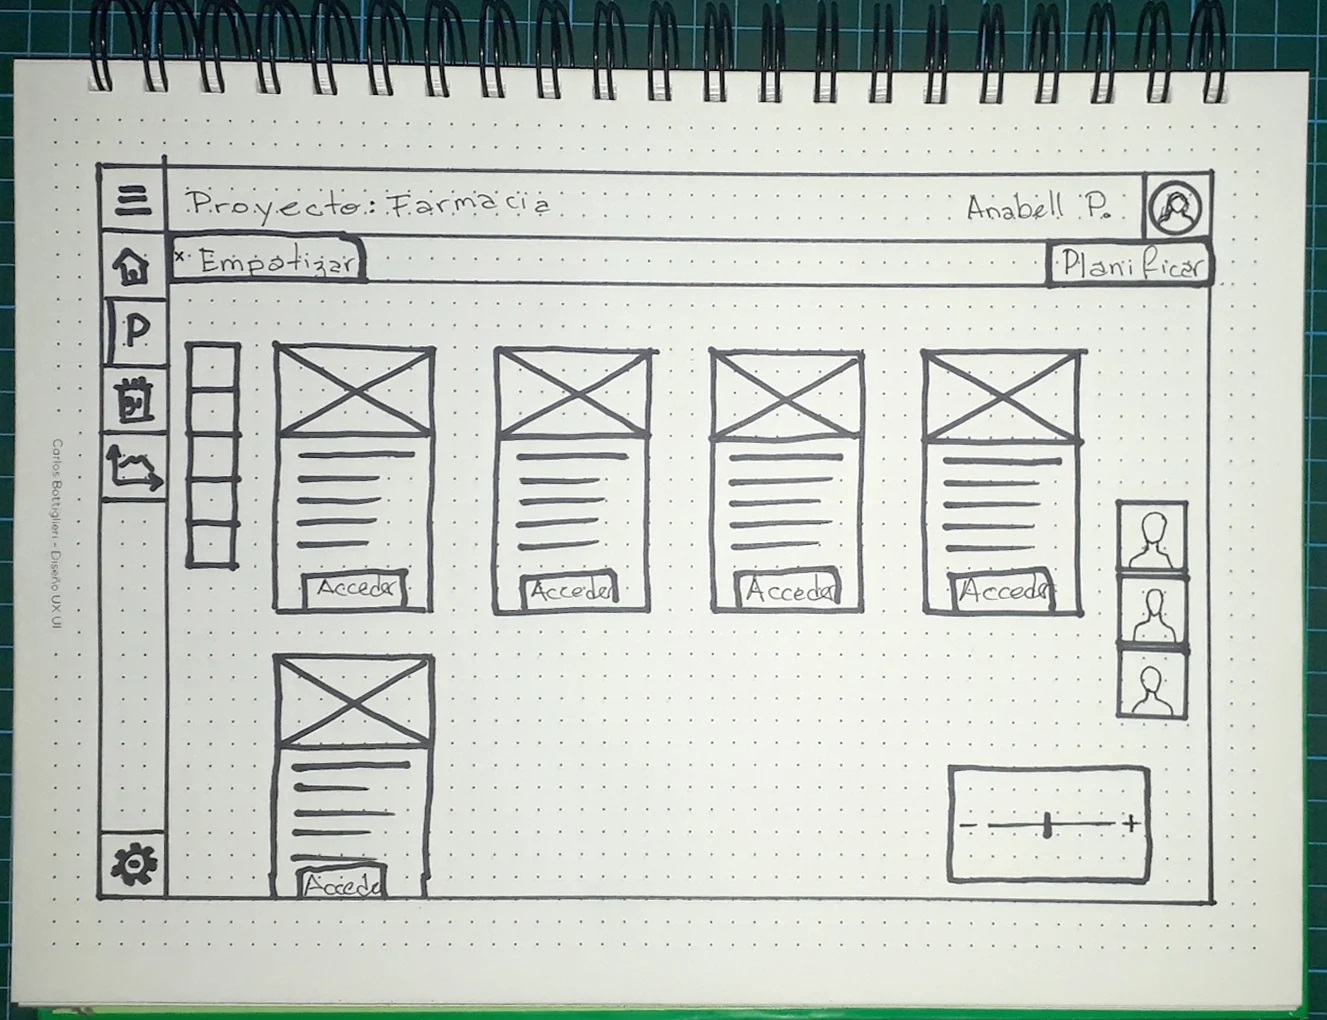 Proyecto: Farmacia
Anabell P.
x Empatizar
Planificar
P
Acceder
Acceder
Acceder
Acceder
Acceder
- +
Carlos Bottiglieri - Diseño UX UI